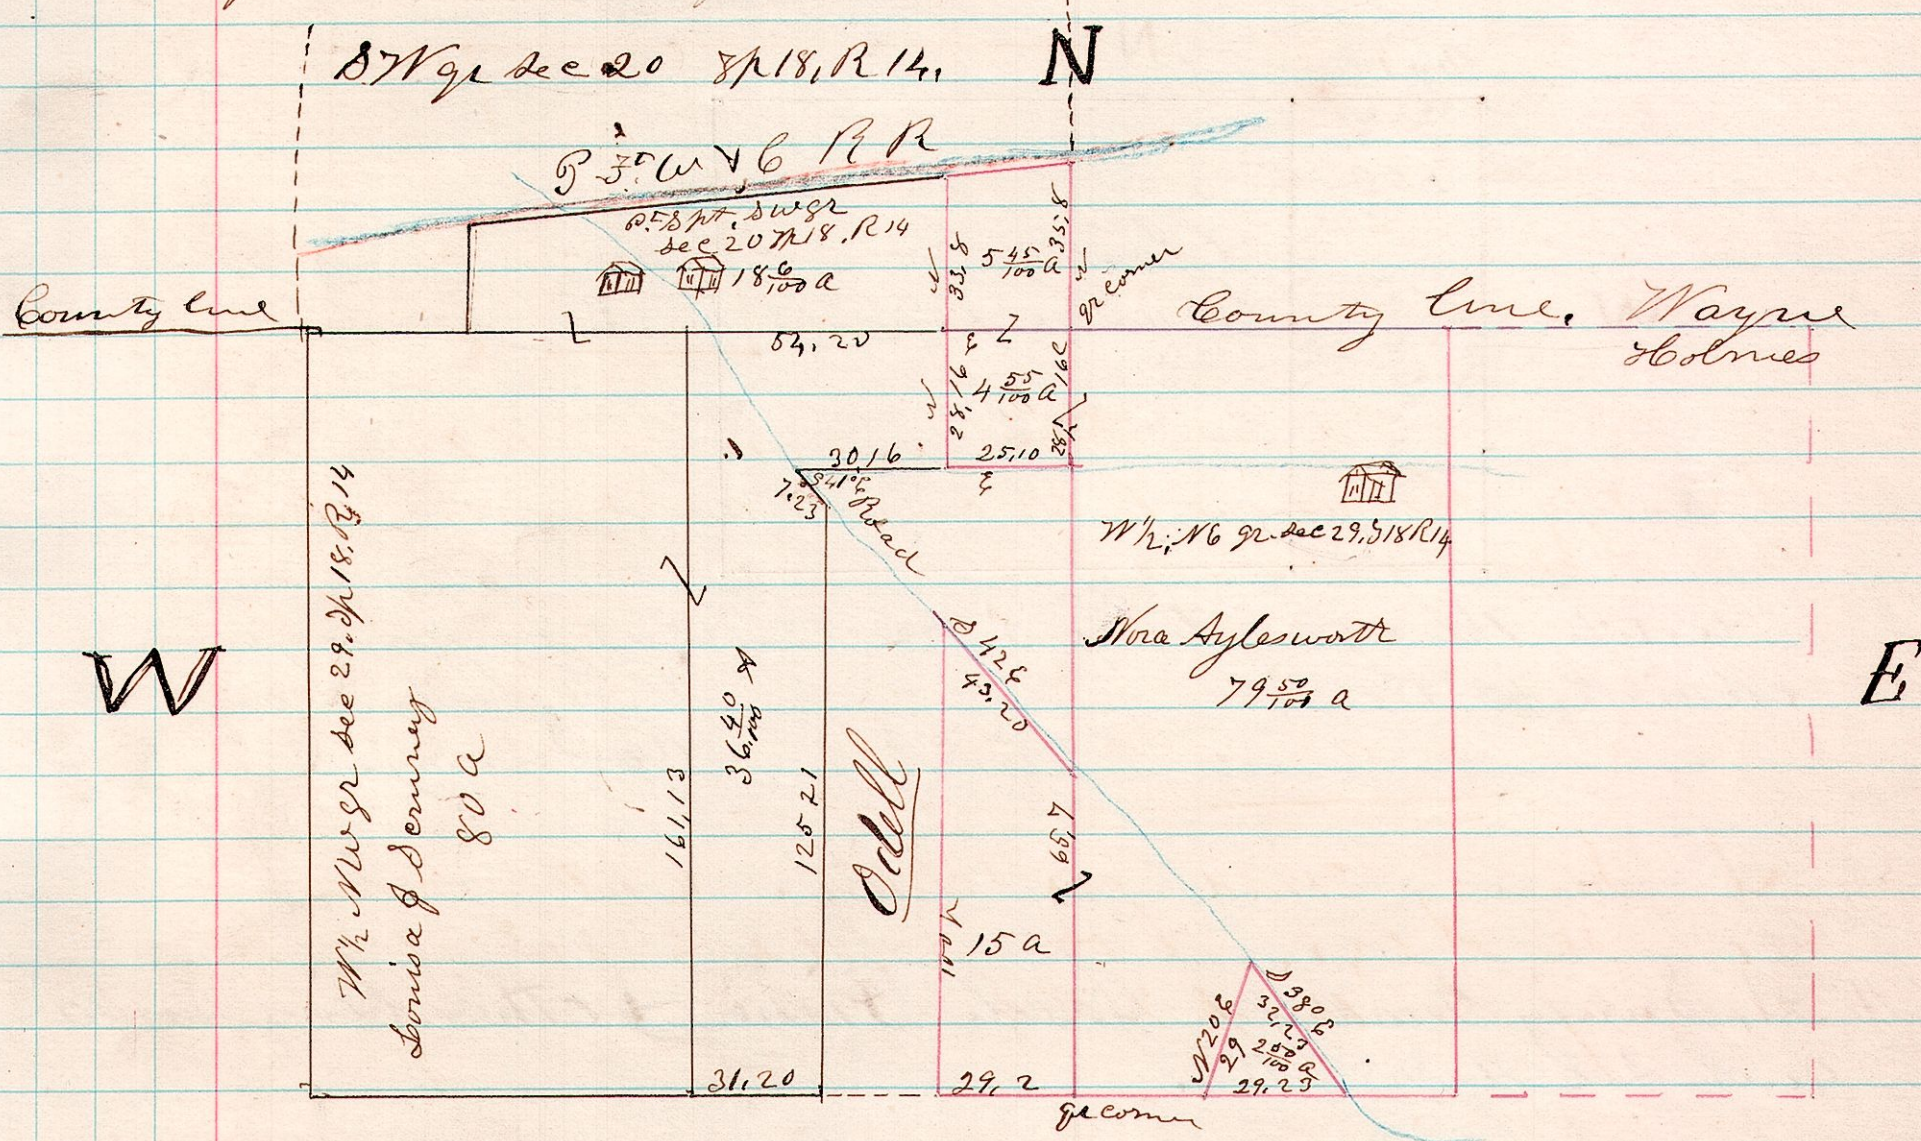 SW qr sec 20 Tp 18, R 14,
N
P Ft W & C R R
Pt S pt. swqr
sec 20 Tp 18. R 14
18 6/100 a
33,8
5 45/100 a
35,8
qr corner
County line
County line. Wayne
Holmes
54,20
28,16
4 55/100 a
28,16
30,16
25,10
S 41° E
7.23
Road
W 1/2 NE qr sec 29, T 18 R 14
W 1/2 NW qr sec 29, Tp 18. R 14
Louisa J
80 a
W
E
161,13
36 40/100 A
125 21
Odell
S 42 E
43,20
Nora Aylesworth
79 50/100 a
65,7
100
15 a
N 20 E
29
S 38 E
32,23
2 50/100 a
29,23
31,20
29,2
qr corner